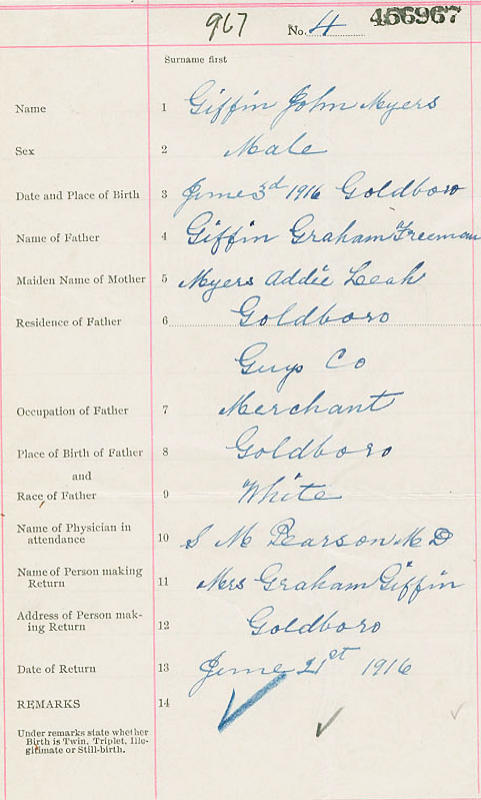 967 No. 4 456967
Surname first
Name 1 Giffin John Myers
Sex 2 Male
Date and Place of Birth 3 June 3rd 1916 Goldboro
Name of Father 4 Giffin Graham Freeman
Maiden Name of Mother 5 Myers Addie Leah
Residence of Father 6 Goldboro
Guys Co
Occupation of Father 7 Merchant
Place of Birth of Father 8 Goldboro
and
Race of Father 9 White
Name of Physician in
attendance 10 S M Pearson M D
Name of Person making
Return 11 Mrs Graham Giffin
Address of Person mak-
ing Return 12 Goldboro
Date of Return 13 June 21st 1916
REMARKS 14
Under remarks state whether
Birth is Twin, Triplet, Ille-
gitimate or Still-birth.